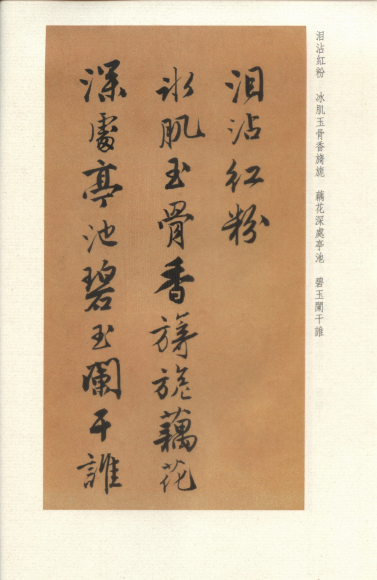 泪沾紅粉　冰肌玉骨香旖旎　藕花深處亭池　碧玉闌干誰
泪沾紅粉
冰肌玉骨香旖旎藕花
深處亭池碧玉闌干誰